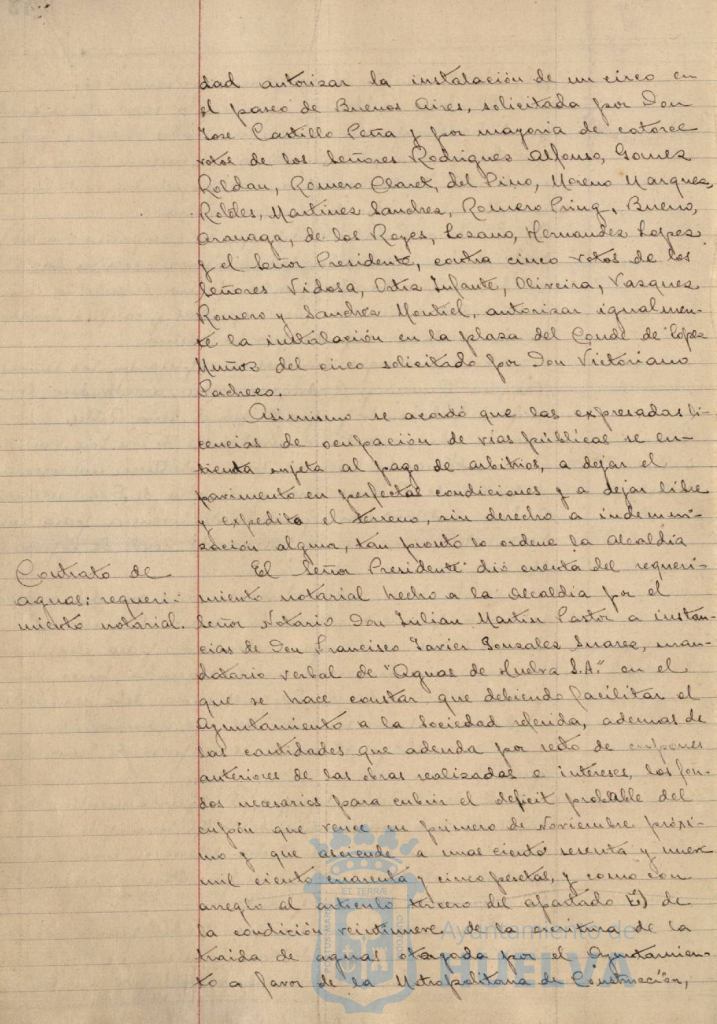 dad autorizar la instalación de un circo en
el paseo de Buenos Aires, solicitada por Don
Jose Castillo Peña y por mayoria de catorce
votos de los Señores Rodriguez Alfonso, Gomez
Roldan, Romero Claret, del Pino, Moreno Marquez,
Robles, Martinez Sanchez, Romero Pring, Bueno,
Aranaga, de los Reyes, Lozano, Hernandez Lopez
y el Señor Presidente, contra cinco votos de los
Señores Vidosa, Ortiz Infante, Oliveira, Vazquez
Romero y Sanchez Montiel, autorizar igualmen-
te la instalación en la plaza del Conde de Lopez
Muñoz del circo solicitado por Don Victoriano
Pacheco.
Asimismo se acordó que las expresadas li-
cencias de ocupación de vias públicas se en-
tienda sujeta al pago de arbitrios, a dejar el
pavimento en perfectas condiciones y a dejar libre
y expedito el terreno, sin derecho a indemni-
zación alguna, tan pronto lo ordene la Alcaldia
Contrato de
aguas: requeri-
miento notarial.
El Señor Presidente dió cuenta del requeri-
miento notarial hecho a la Alcaldia por el
Señor Notario Don Julian Martin Pastor a instan-
cias de Don Francisco Javier Gonzalez Suarez, man-
datario verbal de "Aguas de Huelva S.A." en el
que se hace constar que debiendo facilitar el
Ayuntamiento a la Sociedad referida, ademas de
las cantidades que adeuda por resto de cupones
anteriores de las obras realizadas e intereses, los fon-
dos necesarios para cubrir el deficit probable del
cupón que vence en primero de Noviembre próxi-
mo y que asciende a unas ciento sesenta y nueve
mil ciento cuarenta y cinco pesetas, y como con
arreglo al articulo tercero del apartado E) de
la condición veintinueve de la escritura de la
traida de aguas otorgada por el Ayuntamien-
to a favor de la Metropolitana de Construcción,
Ayuntamiento de
HUELVA